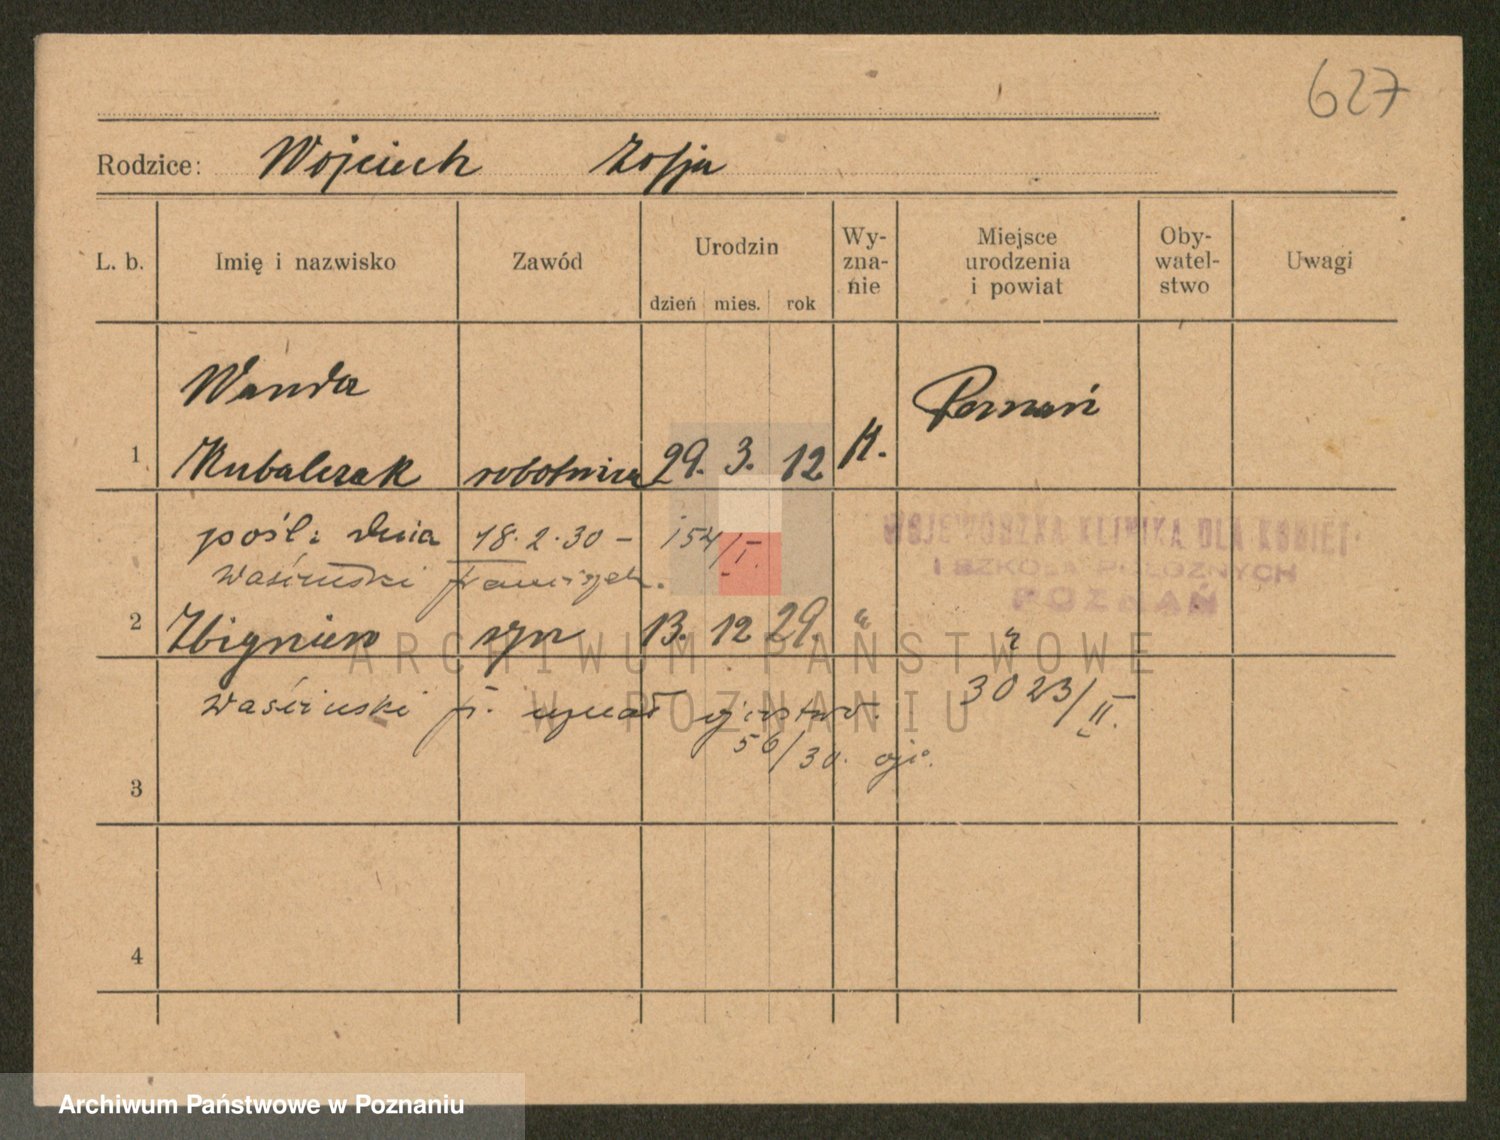 627
Rodzice: Wojciech Zofja
L. b. Imię i nazwisko Zawód Urodzin dzień mies. rok Wy- zna- nie Miejsce urodzenia i powiat Oby- watel- stwo Uwagi
Wanda Poznań
1 Kubalczak robotnica 29. 3. 12 K.
pośl: dnia 18.2.30 - 154/I.
WOJEWÓDZKA KLINIKA DLA KOBIET
Waściński Franciszek.
I SZKOŁA POŁOŻNYCH
POZNAŃ
2 Zbigniew syn 13. 12 29. " "
ARCHIWUM PAŃSTWOWE
W POZNANIU
Waściński F. uznał ojcostwo. 3023/II.
56/30. ojc.
3
4
Archiwum Państwowe w Poznaniu